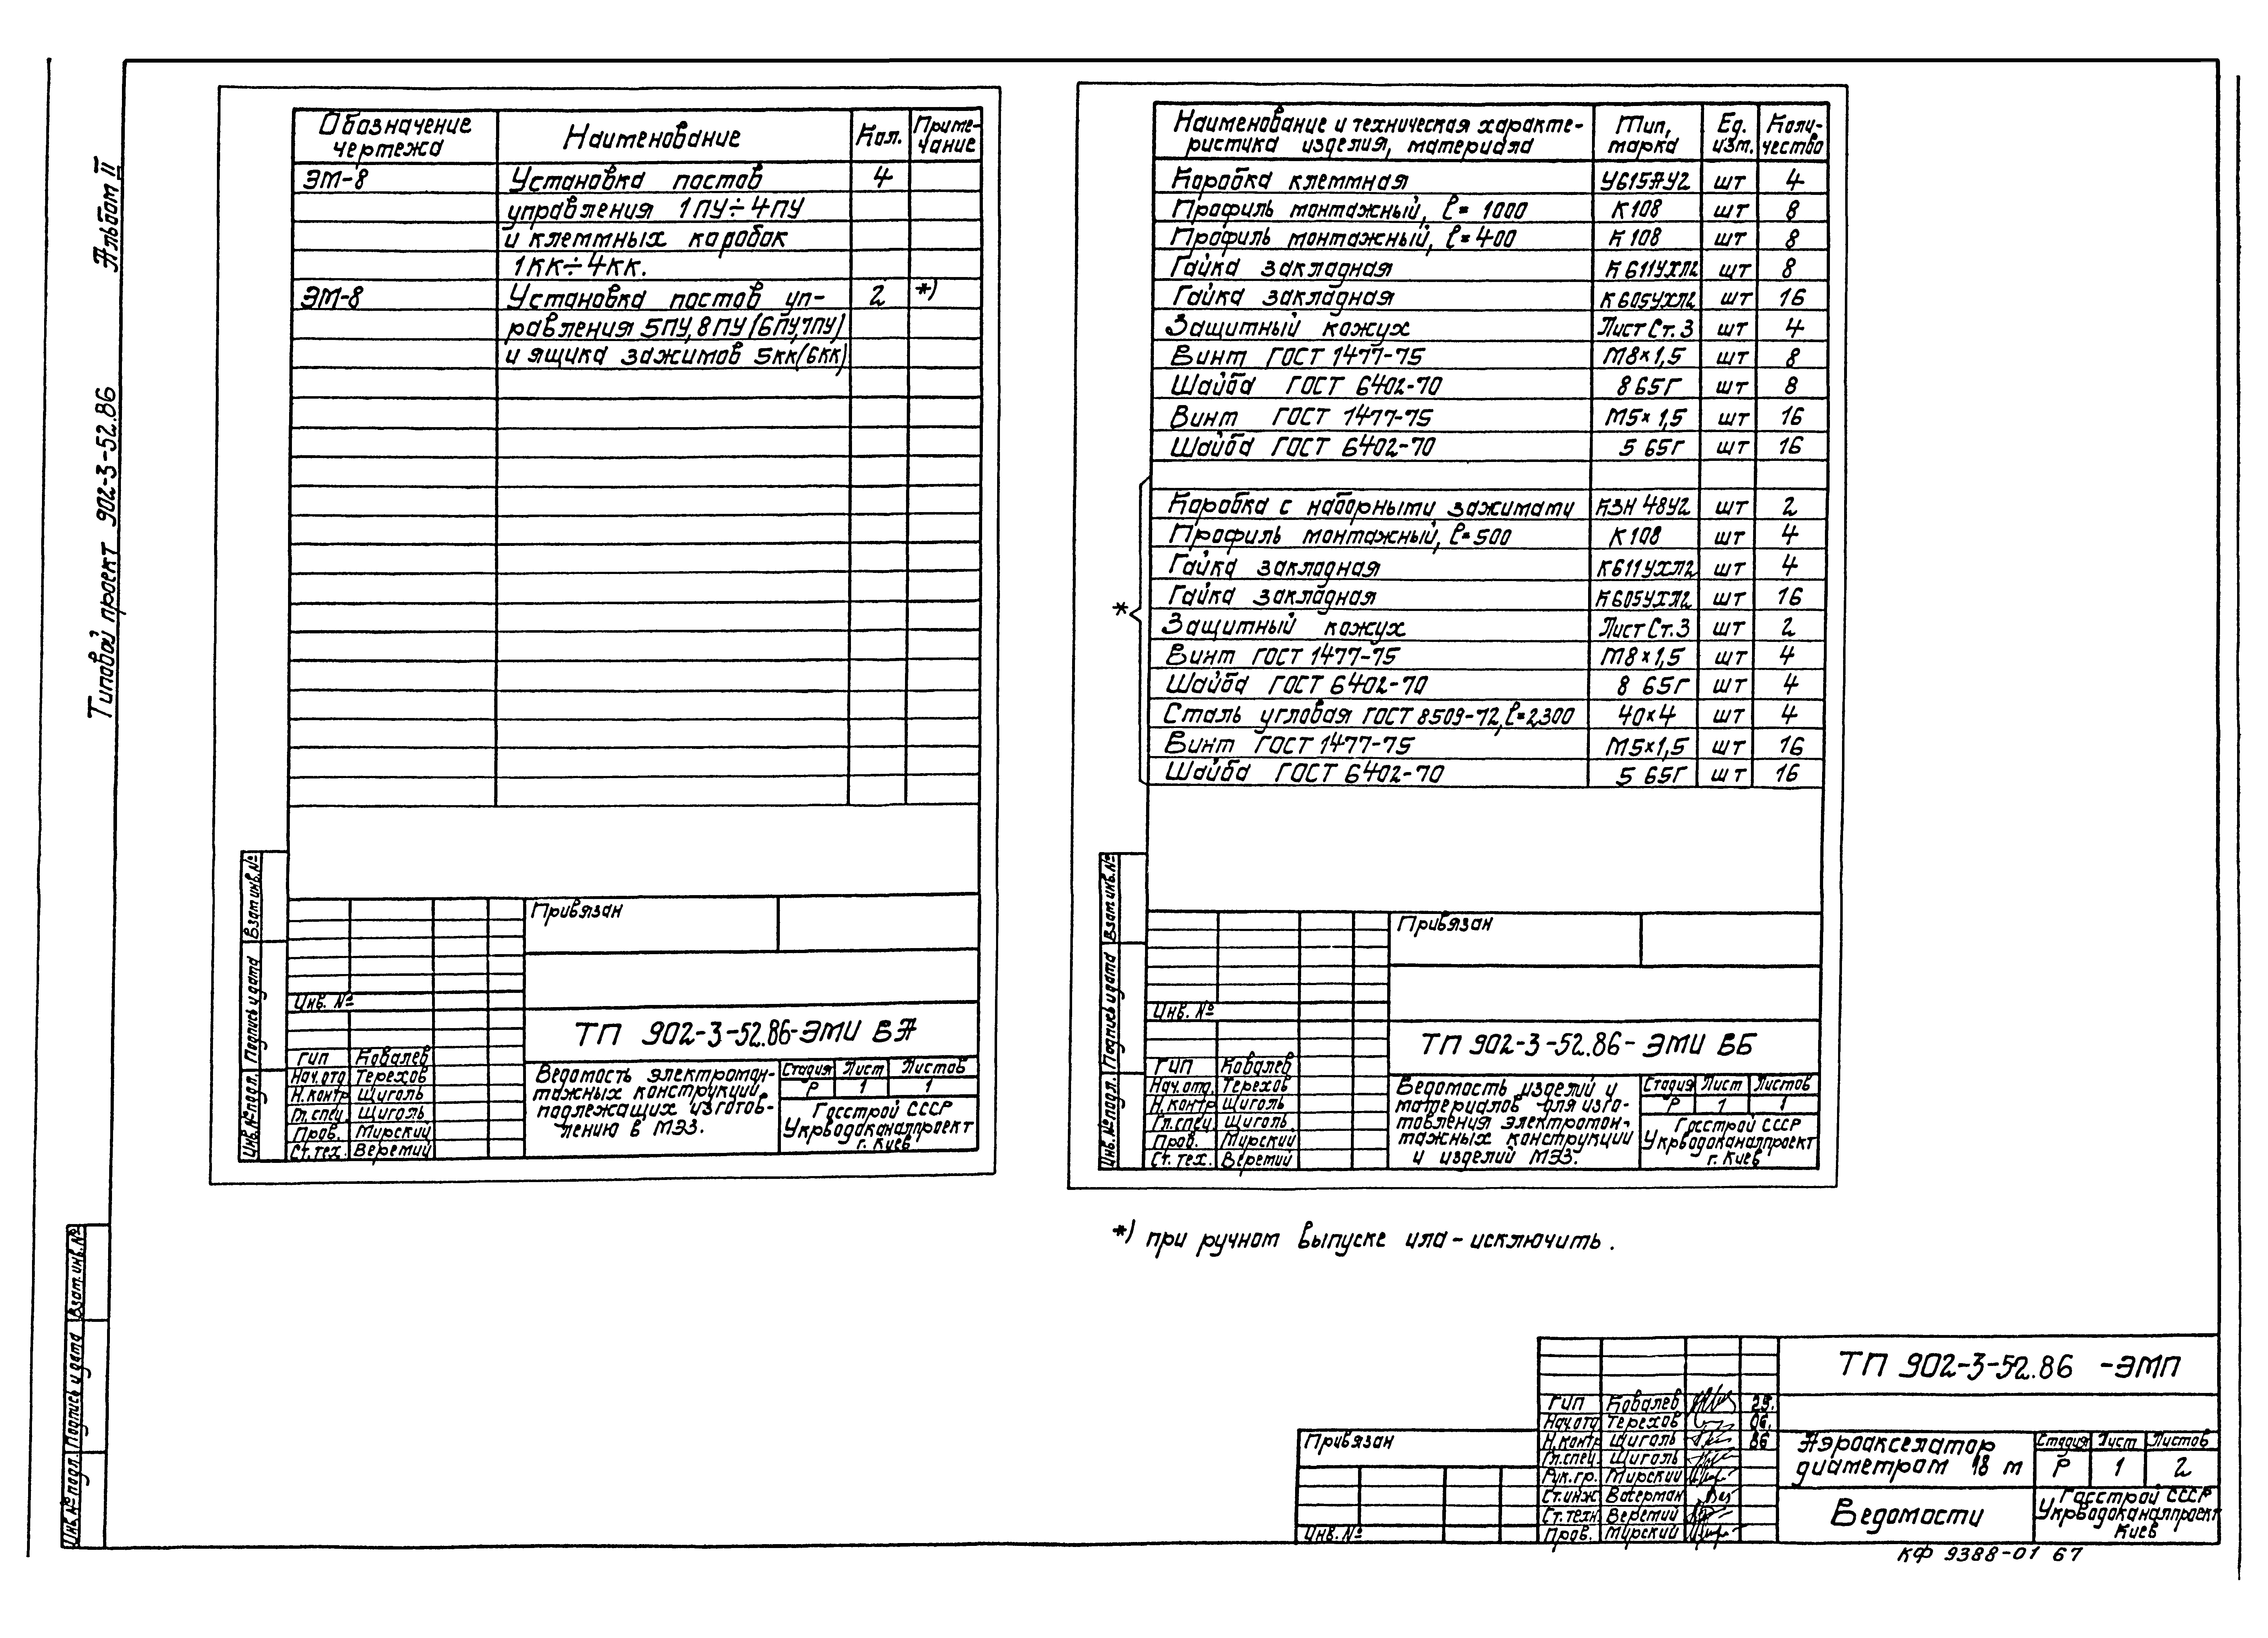 Альбом II
Типовой проект 902-3-52.86
Обозначение чертежа | Наименование | Кол. | Примечание
ЭМ-8 | Установка постов | 4
управления 1ПУ÷4ПУ
и клеммных коробок
1КК÷4КК.
ЭМ-8 | Установка постов уп- | 2 | *)
равления 5ПУ, 8ПУ (6ПУ, 7ПУ)
и ящика зажимов 5КК(6КК)
Взам.инв.№
Подпись и дата
Инв.№ подл.
Привязан
Инв. №
ТП 902-3-52.86-ЭМИ ВА
ГИП Ковалев
Нач.отд Терехов
Н.контр Щиголь
Гл.спец. Щиголь
Пров. Мирский
Ст.тех. Веремий
Ведомость электромон-
тажных конструкций,
надлежащих изготов-
лению в МЭЗ.
Стадия Лист Листов
Р 1 1
Госстрой СССР
Укрводоканалпроект
г. Киев
Наименование и техническая характе- | Тип, | Ед. | Коли-
ристика изделия, материала | марка | изм. | чество
Коробка клеммная | У615АУ2 | шт | 4
Профиль монтажный, ℓ=1000 | К108 | шт | 8
Профиль монтажный, ℓ=400 | К108 | шт | 8
Гайка закладная | К611УХЛ2 | шт | 8
Гайка закладная | К605УХЛ2 | шт | 16
Защитный кожух | Лист Ст.3 | шт | 4
Винт ГОСТ 1477-75 | М8×1,5 | шт | 8
Шайба ГОСТ 6402-70 | 8 65Г | шт | 8
Винт ГОСТ 1477-75 | М5×1,5 | шт | 16
Шайба ГОСТ 6402-70 | 5 65Г | шт | 16
*
Коробка с наборными зажимами | КЗН 48У2 | шт | 2
Профиль монтажный, ℓ=500 | К108 | шт | 4
Гайка закладная | К611УХЛ2 | шт | 4
Гайка закладная | К605УХЛ2 | шт | 16
Защитный кожух | Лист Ст.3 | шт | 2
Винт ГОСТ 1477-75 | М8×1,5 | шт | 4
Шайба ГОСТ 6402-70 | 8 65Г | шт | 4
Сталь угловая ГОСТ 8509-72, ℓ=2300 | 40×4 | шт | 4
Винт ГОСТ 1477-75 | М5×1,5 | шт | 16
Шайба ГОСТ 6402-70 | 5 65Г | шт | 16
Взам.инв.№
Подпись и дата
Инв.№ подл.
Привязан
Инв. №
ТП 902-3-52.86-ЭМИ ВБ
ГИП Ковалев
Нач.отд. Терехов
Н.контр Щиголь
Гл.спец Щиголь
Пров. Мирский
Ст.тех. Веремий
Ведомость изделий и
материалов для изго-
товления электромон-
тажных конструкции
и изделий МЭЗ.
Стадия Лист Листов
Р 1 1
Госстрой СССР
Укрводоканалпроект
г. Киев
*) при ручном выпуске ила-исключить.
Взам.инв.№
Подпись и дата
Инв.№ подл.
Привязан
Инв. №
ГИП Ковалев 25.
Нач.отд Терехов 06.
Н.контр Щиголь 86
Гл.спец. Щиголь
Рук.гр. Мирский
Ст.инж Ватерман
Ст.техн. Веремий
Пров. Мирский
ТП 902-3-52.86 -ЭМП
Аэроакселатор
диаметром 18 м
Стадия Лист Листов
Р 1 2
Ведомости
Госстрой СССР
Укрводоканалпроект
Киев
КФ 9388-01 67